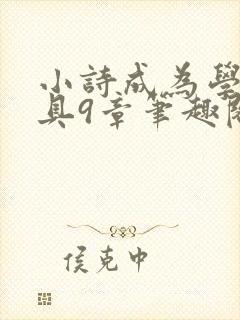 小詩成為學
具9章筆趣閣
侯克中